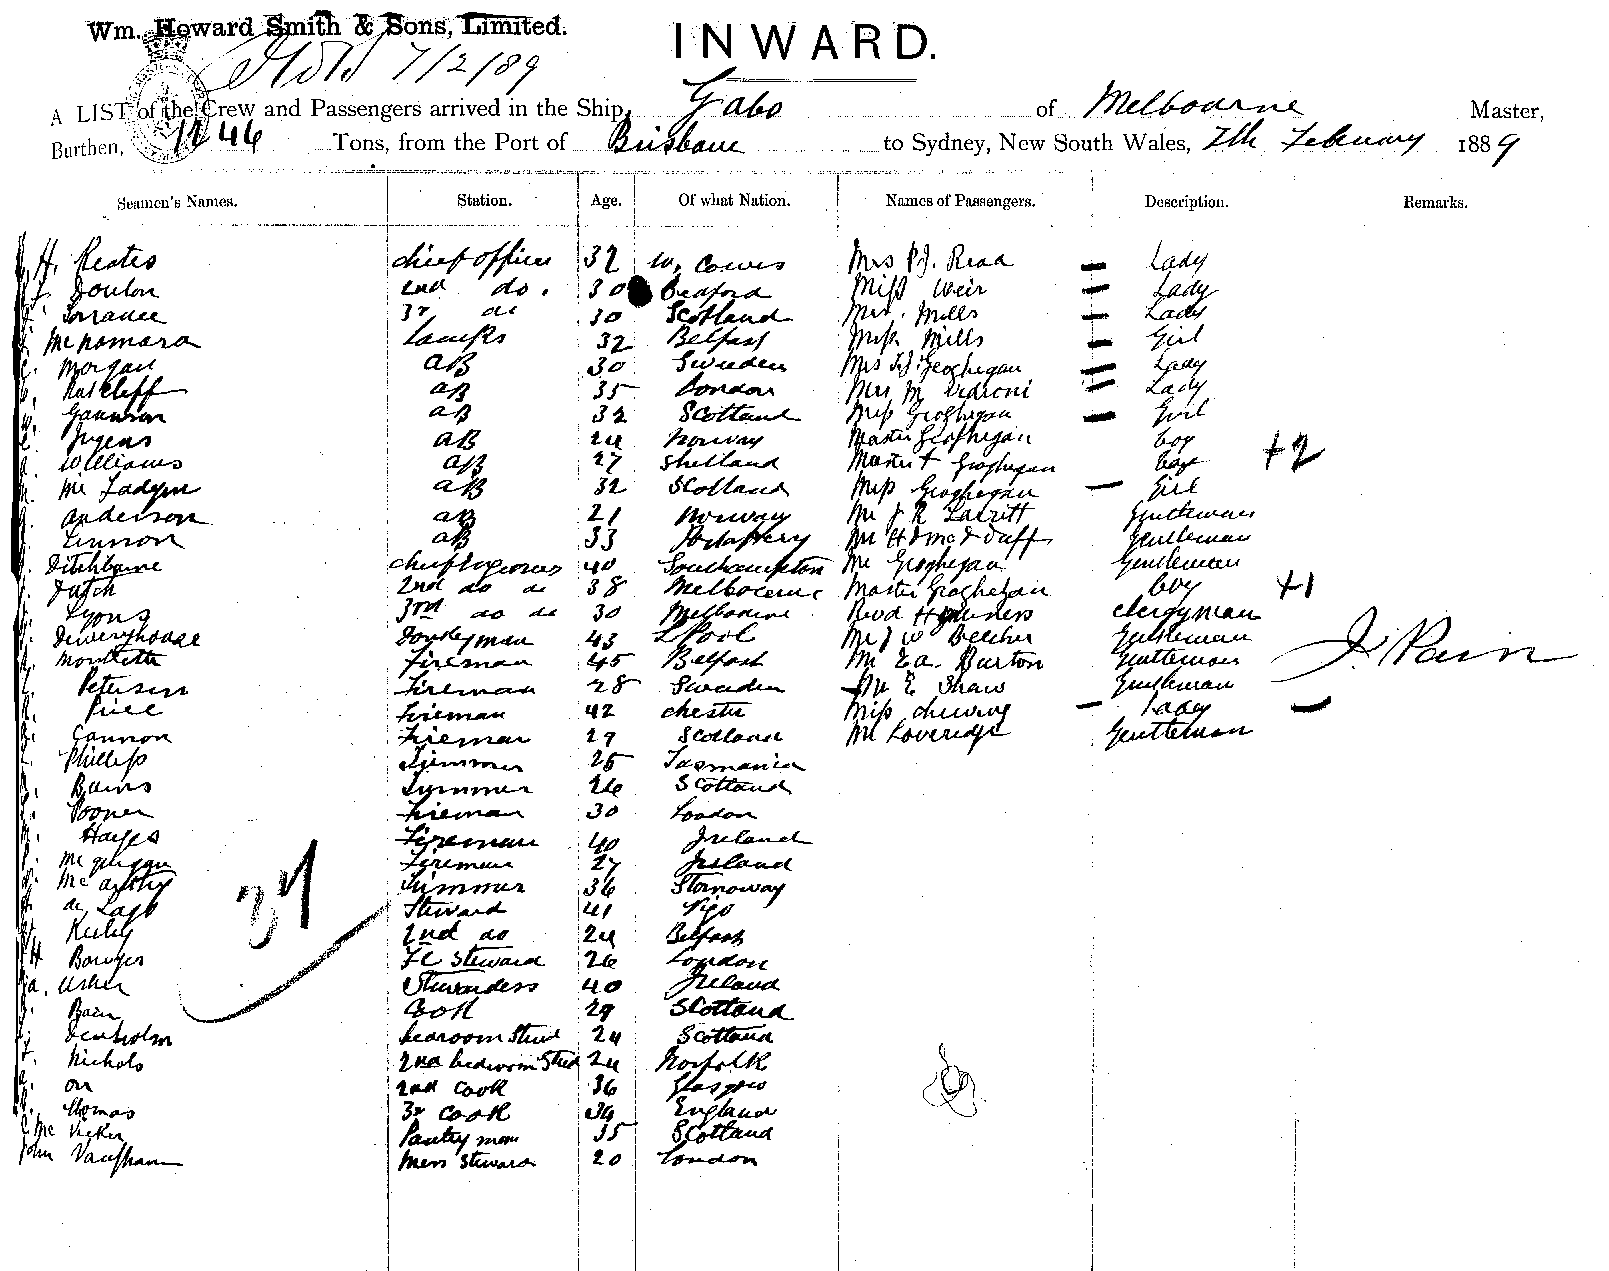 Wm. Howard Smith & Sons, Limited.
INWARD.
7/2/89
A LIST of the Crew and Passengers arrived in the Ship, Gabo of Melbourne Master,
Burthen, Tons, from the Port of Brisbane to Sydney, New South Wales, 7th February 1889
Seamen's Names. Station. Age. Of what Nation. Names of Passengers. Description. Remarks.
H. Keates chief officer 32 W. Cowes Mrs P.J. Read Lady
Doulon 2nd do. 30 Bedford Miss Weir Lady
Torrance 3r do 30 Scotland Mrs. Mills Lady
McNamara Lamps 32 Belfast Miss Mills Girl
Morgan AB 30 Sweden Mrs Geoghegan Lady
Ratcliff AB 35 London Mrs M Lady
Gannon AB 32 Scotland Miss Geoghegan Girl
Jugens AB 24 Norway Master Geoghegan boy
Williams AB 27 Shetland Master Geoghegan boy +2
Mc Fadgen AB 32 Scotland Miss Geoghegan Girl
Anderson AB 21 Norway Mr J R Larritt Gentleman
Lennon AB 33 Mr H McD Duff Gentleman
Ditchburne chief Engineer 40 Southampton Mr Geoghegan Gentleman
Dutch 2nd do do 38 Melbourne Master Geoghegan boy +1
Lyons 3rd do do 30 Melbourne Revd H Clergyman
Deweryhouse Donkeyman 43 L'Pool Mr J W Belcher Gentleman
Fireman 45 Belfast Mr E A. Burton Gentleman J. Pain
Petersen Fireman 28 Sweden Mr E Shaw Gentleman
Price Fireman 42 Chester Miss Lady
Cannon Fireman 29 Scotland Mr Loveridge Gentleman
Phillips Trimmer 25 Tasmania
Bains Trimmer 26 Scotland
Pooner Fireman 30 London
Hayes Fireman 40 Ireland
McGuigan Fireman 27 Ireland
McArthy Trimmer 36 Stornoway
37
de Lago Steward 41 Vigo
Kerby 2nd do 24 Belfast
H Bowyer F.C Steward 26 London
a. Usher Stewardess 40 Ireland
Bain Cook 29 Scotland
Denholm bedroom Stewd 24 Scotland
Nichols 2nd bedroom Stwd 24 Norfolk
Orr 2nd Cook 36 Glasgow
Thomas 3r Cook 34 England
McVicker Pantry man 35 Scotland
John Vaughann Mess Steward 20 London